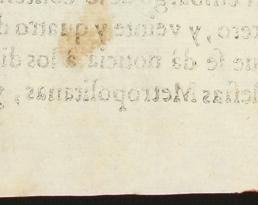 tero, y veinte y quatro d
ue se dà noticia à los di
lesias Metropolitanas, y